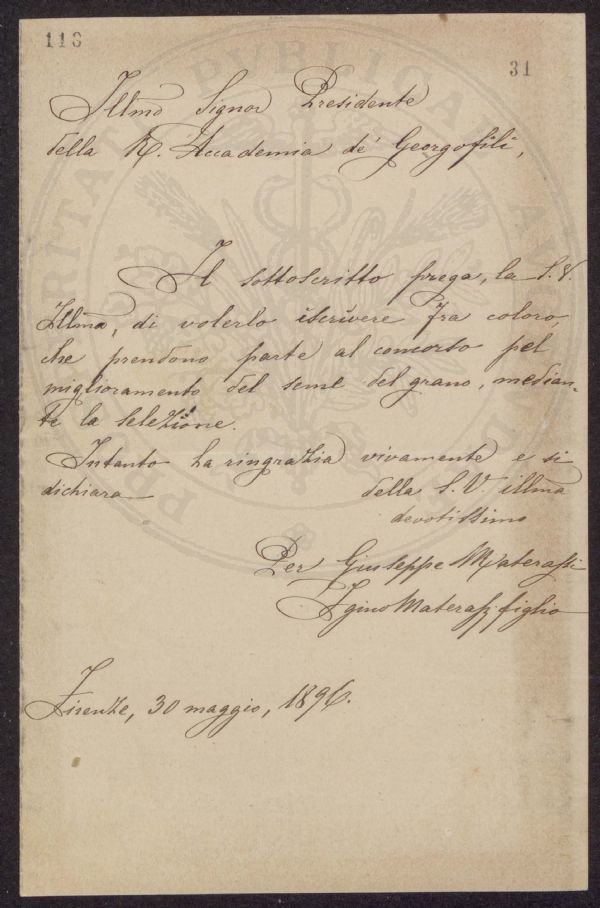 118
31
Illmo Signor Presidente
della R. Accademia de' Georgofili,
Il sottoscritto prega, la S. V.
Illma, di volerlo iscrivere fra coloro,
che prendono parte al concorso pel
miglioramento del seme del grano, median-
te la selezione.
Intanto La ringrazia vivamente e si
dichiara
della S. V. illma
devotissimo
Per Giuseppe Materassi
Igino Materassi figlio
Firenze, 30 maggio, 1896.